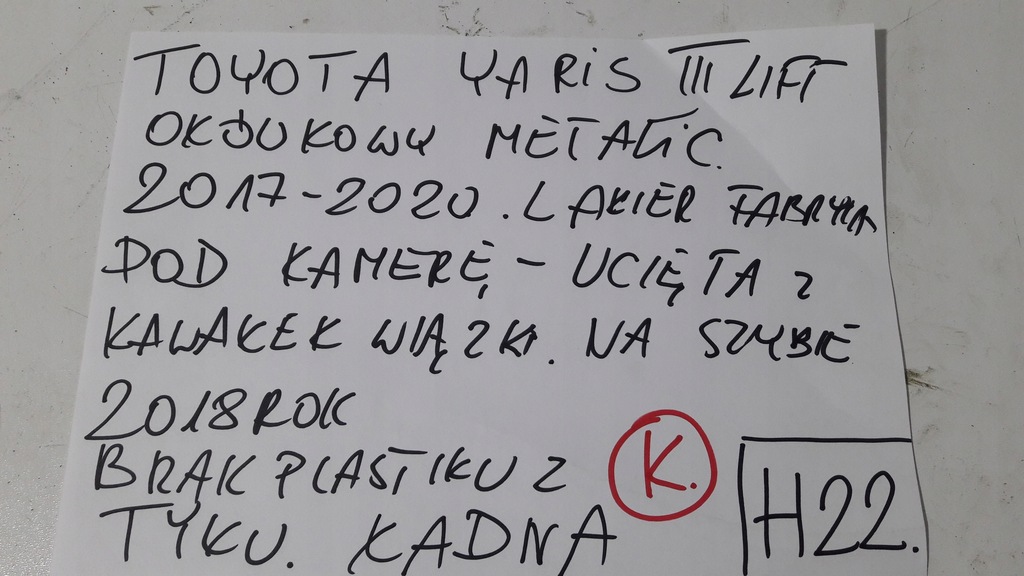 TOYOTA YARIS III LIFT
OŁÓUKOWY METALIC.
2017-2020. LAKIER FABRYKA
POD KAMERĘ - UCIĘTA I
KAWAŁEK WIĄZKI. NA SZYBIE
2018 ROK
BRAK PLASTIKU Z
TYŁU. ŁADNA
K.
H22.